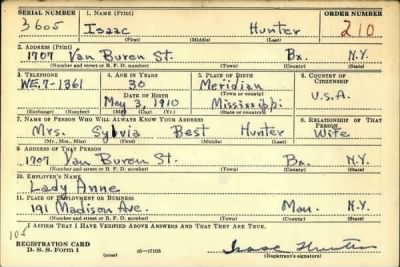 SERIAL NUMBER 1. NAME (Print) ORDER NUMBER
3605 Isaac Hunter 210
(First) (Middle) (Last)
2. ADDRESS (Print)
1707 Van Buren St. Bx. N.Y.
(Number and street or R. F. D. number) (Town) (County) (State)
3. TELEPHONE 4. AGE IN YEARS 5. PLACE OF BIRTH 6. COUNTRY OF CITIZENSHIP
WE.7-1361 30 Meridian
DATE OF BIRTH (Town or county)
May 3, 1910 Mississippi U.S.A.
(Exchange) (Number) (Mo.) (Day) (Yr.) (State or country)
7. NAME OF PERSON WHO WILL ALWAYS KNOW YOUR ADDRESS 8. RELATIONSHIP OF THAT PERSON
Mrs. Sylvia Best Hunter Wife
(Mr., Mrs., Miss) (First) (Middle) (Last)
9. ADDRESS OF THAT PERSON
1707 Van Buren St. Bx. N.Y.
(Number and street or R. F. D. number) (Town) (County) (State)
10. EMPLOYER'S NAME
Lady Anne
11. PLACE OF EMPLOYMENT OR BUSINESS
191 Madison Ave. Man. N.Y.
(Number and street or R. F. D. number) (Town) (County) (State)
I AFFIRM THAT I HAVE VERIFIED ABOVE ANSWERS AND THAT THEY ARE TRUE.
105
REGISTRATION CARD
D. S. S. Form 1 (over) 16—17105 Isaac Hunter
(Registrant's signature)